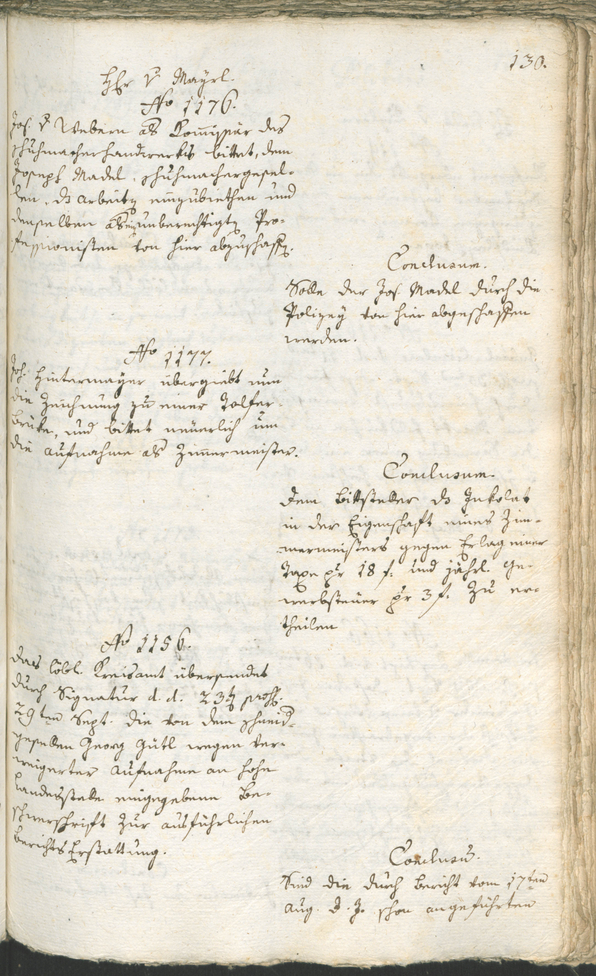 130.
Hr. v. Mayrl.
No 1176.
Jos. v. Webern als Commissär des
Schuhmacherhandwerks bittet, dem
Joseph Madel, Schuhmachergesel-
len, die Arbeit einzubiethen und
denselben als unberechtigten Pro-
fessionisten von hier abzuschaffen.
Conclusum.
Solle der Jos. Madel durch die
Polizey von hier abgeschaffen
werden.
No 1177.
Joh. Hintermayer übergiebt nun
die Zeichnung zu einer Tolfer
Brüke, und bittet neuerlich um
die Aufnahme als Zimmermeister.
Conclusum.
Dem Bittsteller das Inkolat
in der Eigenschaft eines Zim-
mermeisters gegen Erlag einer
Taxe pr 18 f. und jährl. Ge-
werbsteuer pr 3 f. zu er-
theilen
No 1156.
Das löbl. Kreisamt übersendet
durch Signatur d. d. 23t praes.
29ten Sept. die von dem Schneid-
gesellen Georg Gütl wegen ver-
weigerter Aufnahme an hohe
Landesstelle eingegebene Be-
schwerschrift zur ausführlichen
Berichts Erstattung.
Conclusum.
Sind die durch Bericht vom 17ten
Aug. d. J. schon angeführten